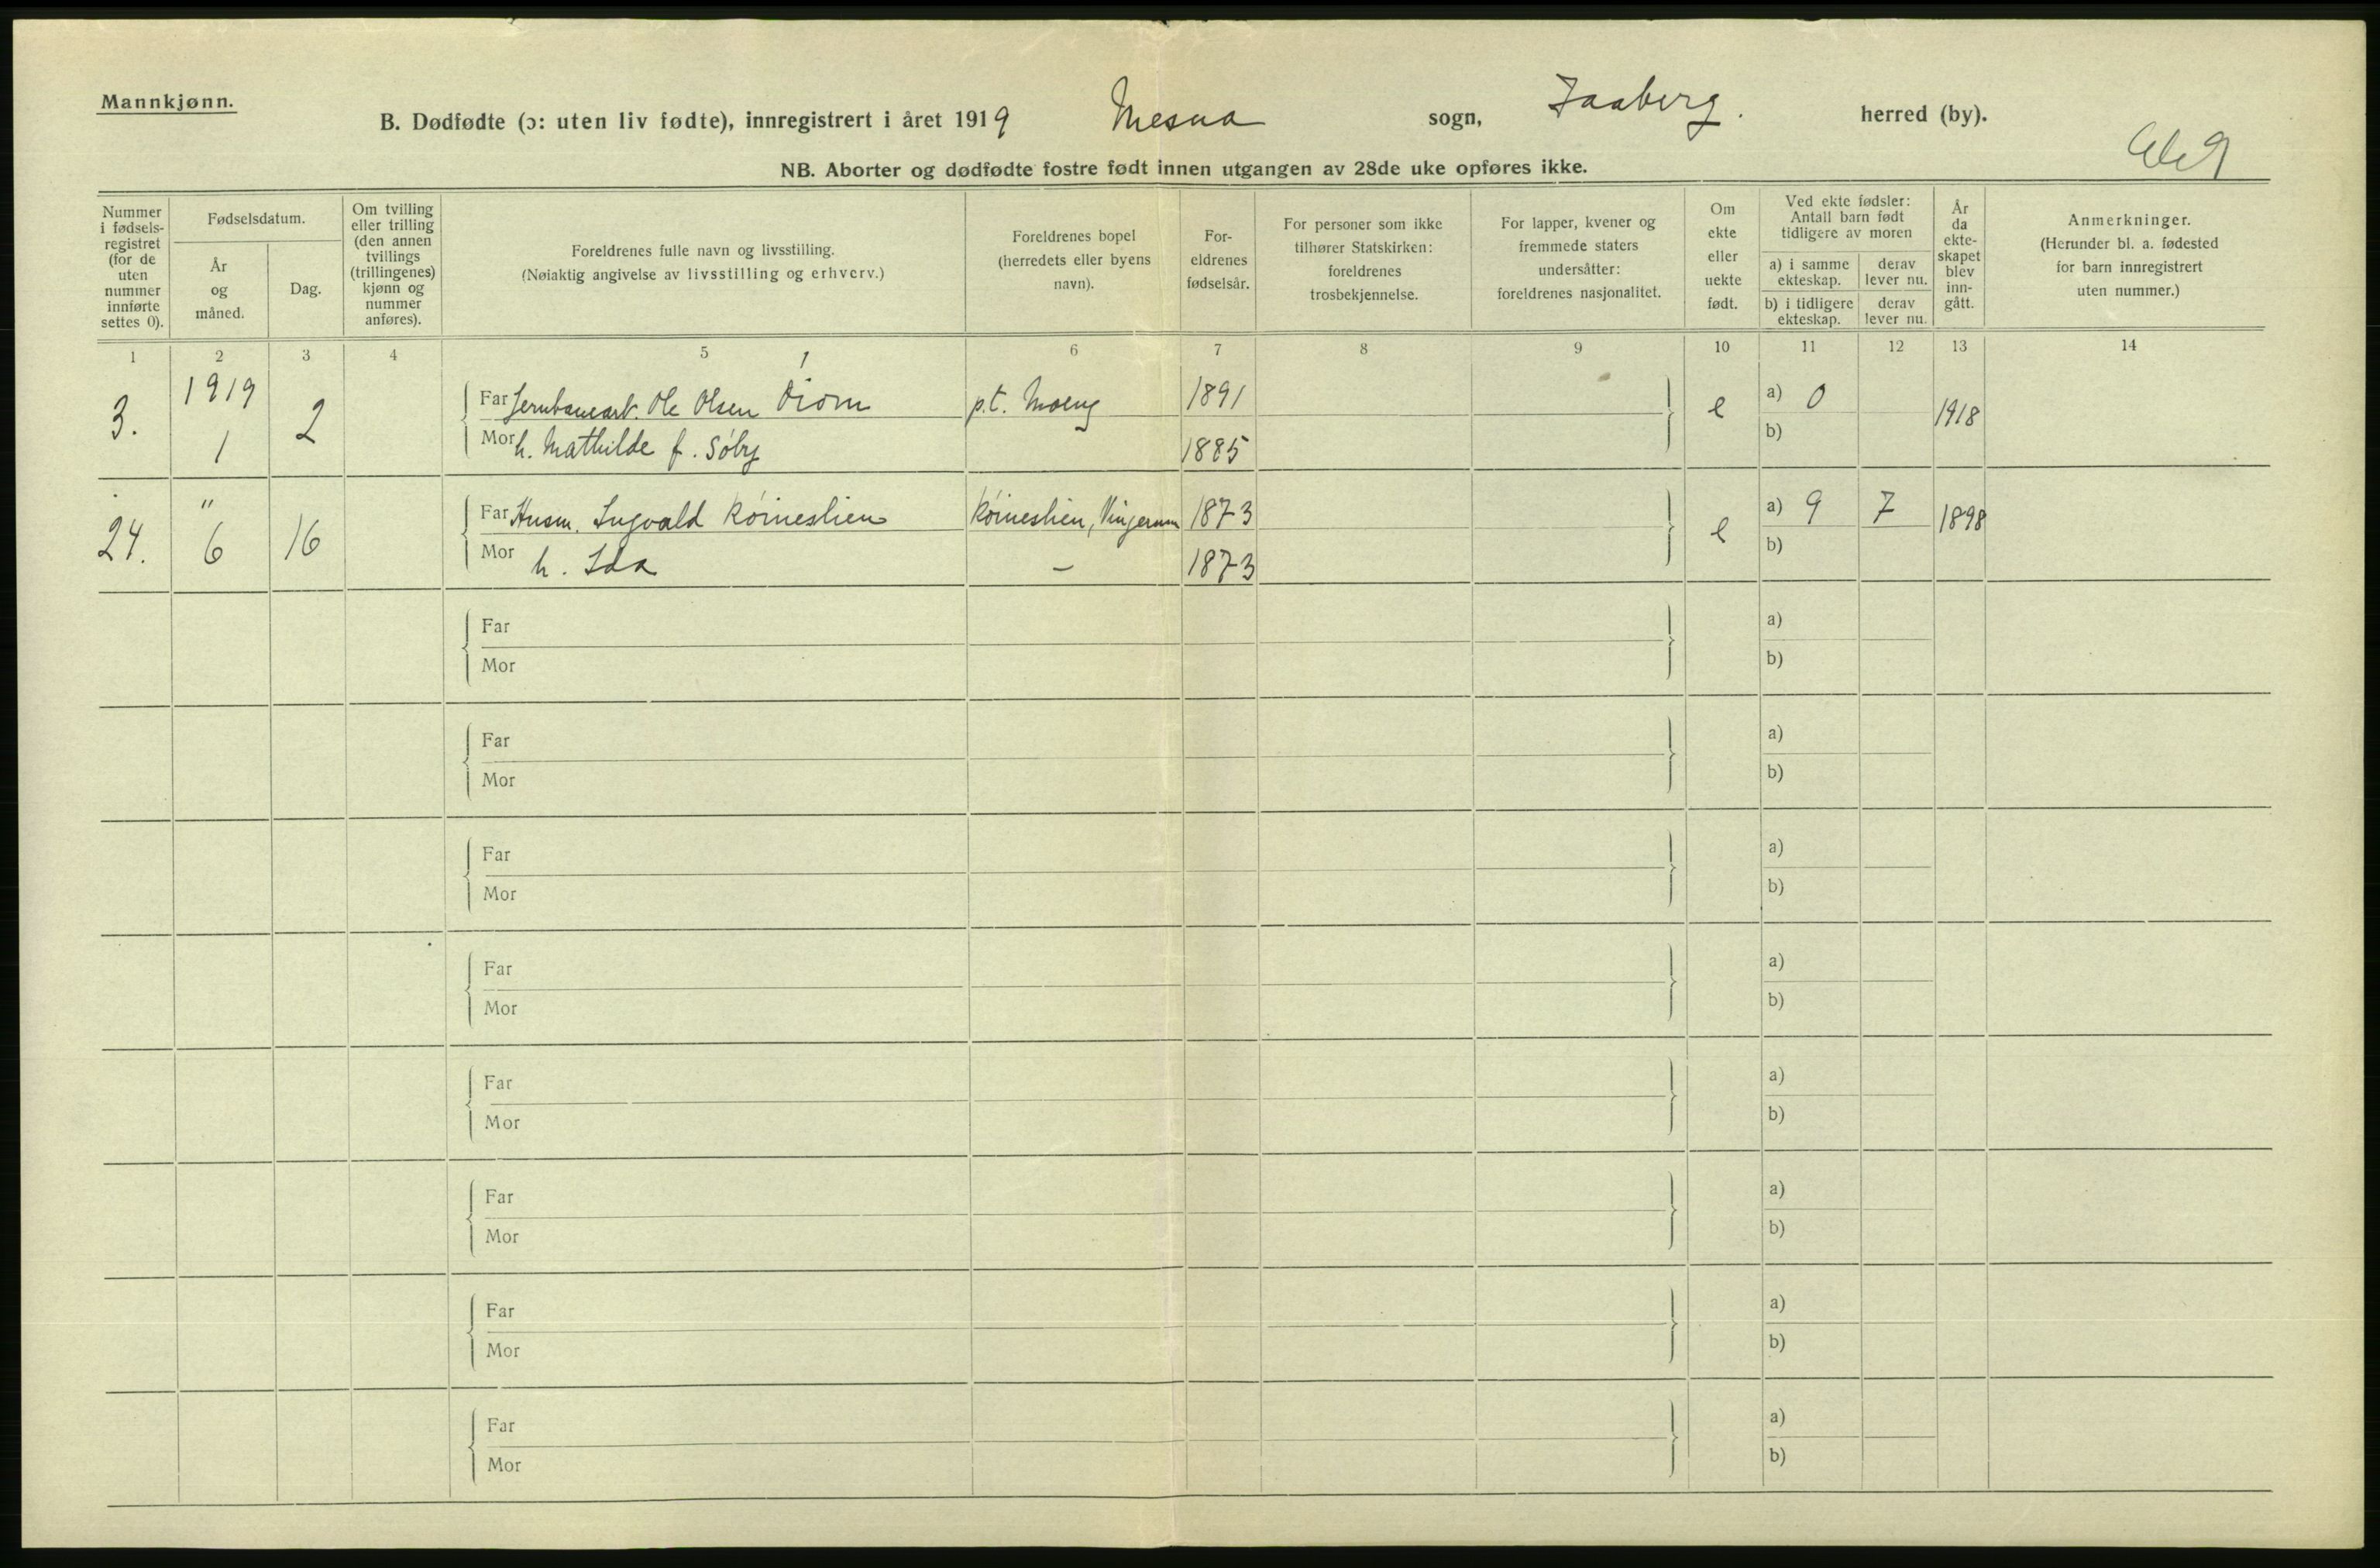 Mannkjønn.
B. Dødfødte (ɔ: uten liv fødte), innregistrert i året 1919 Mesna sogn, Faaberg. herred (by).
NB. Aborter og dødfødte fostre født innen utgangen av 28de uke opføres ikke.
Nummer i fødsels-registret (for de uten nummer innførte settes 0).
Fødselsdatum.
År og måned.
Dag.
Om tvilling eller trilling (den annen tvillings (trillingenes) kjønn og nummer anføres).
Foreldrenes fulle navn og livsstilling.
(Nøiaktig angivelse av livsstilling og erhverv.)
Foreldrenes bopel (herredets eller byens navn).
For-eldrenes fødselsår.
For personer som ikke tilhører Statskirken: foreldrenes trosbekjennelse.
For lapper, kvener og fremmede staters undersåtter: foreldrenes nasjonalitet.
Om ekte eller uekte født.
Ved ekte fødsler: Antall barn født tidligere av moren
a) i samme ekteskap.
derav lever nu.
b) i tidligere ekteskap.
derav lever nu.
År da ekte-skapet blev inn-gått.
Anmerkninger.
(Herunder bl. a. fødested for barn innregistrert uten nummer.)
1 2 3 4 5 6 7 8 9 10 11 12 13 14
3. 1919 1 2 Far Jernbanearb. Ole Olsen p.t. Moelv 1891 e a) 0 1918
Mor h. Mathilde f. Søby 1885 b)
24. " 6 16 Far Husm. Ingvald Röineslien Röineslien, Vingerum 1873 e a) 9 7 1898
Mor h. Ida – 1873 b)
Far a)
Mor b)
Far a)
Mor b)
Far a)
Mor b)
Far a)
Mor b)
Far a)
Mor b)
Far a)
Mor b)
Far a)
Mor b)
Far a)
Mor b)